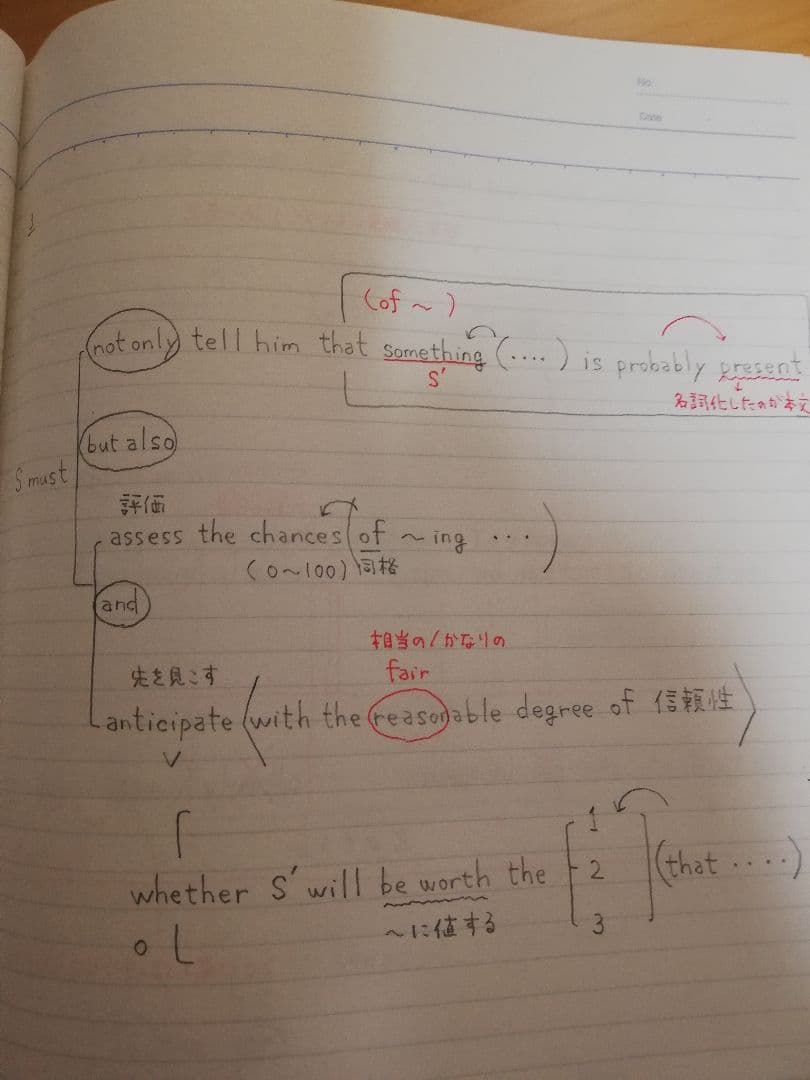 No.
Date
(of ～)
not only tell him that something (....) is probably present
S'
名詞化したのが本文
but also
S must
評価
assess the chances (of ～ing ...)
(0～100) 同格
and
相当の/かなりの
先を見こす
fair
anticipate 〈with the reasonable degree of 信頼性〉
V
1
whether S' will be worth the 2 (that ....)
～に値する 3
O